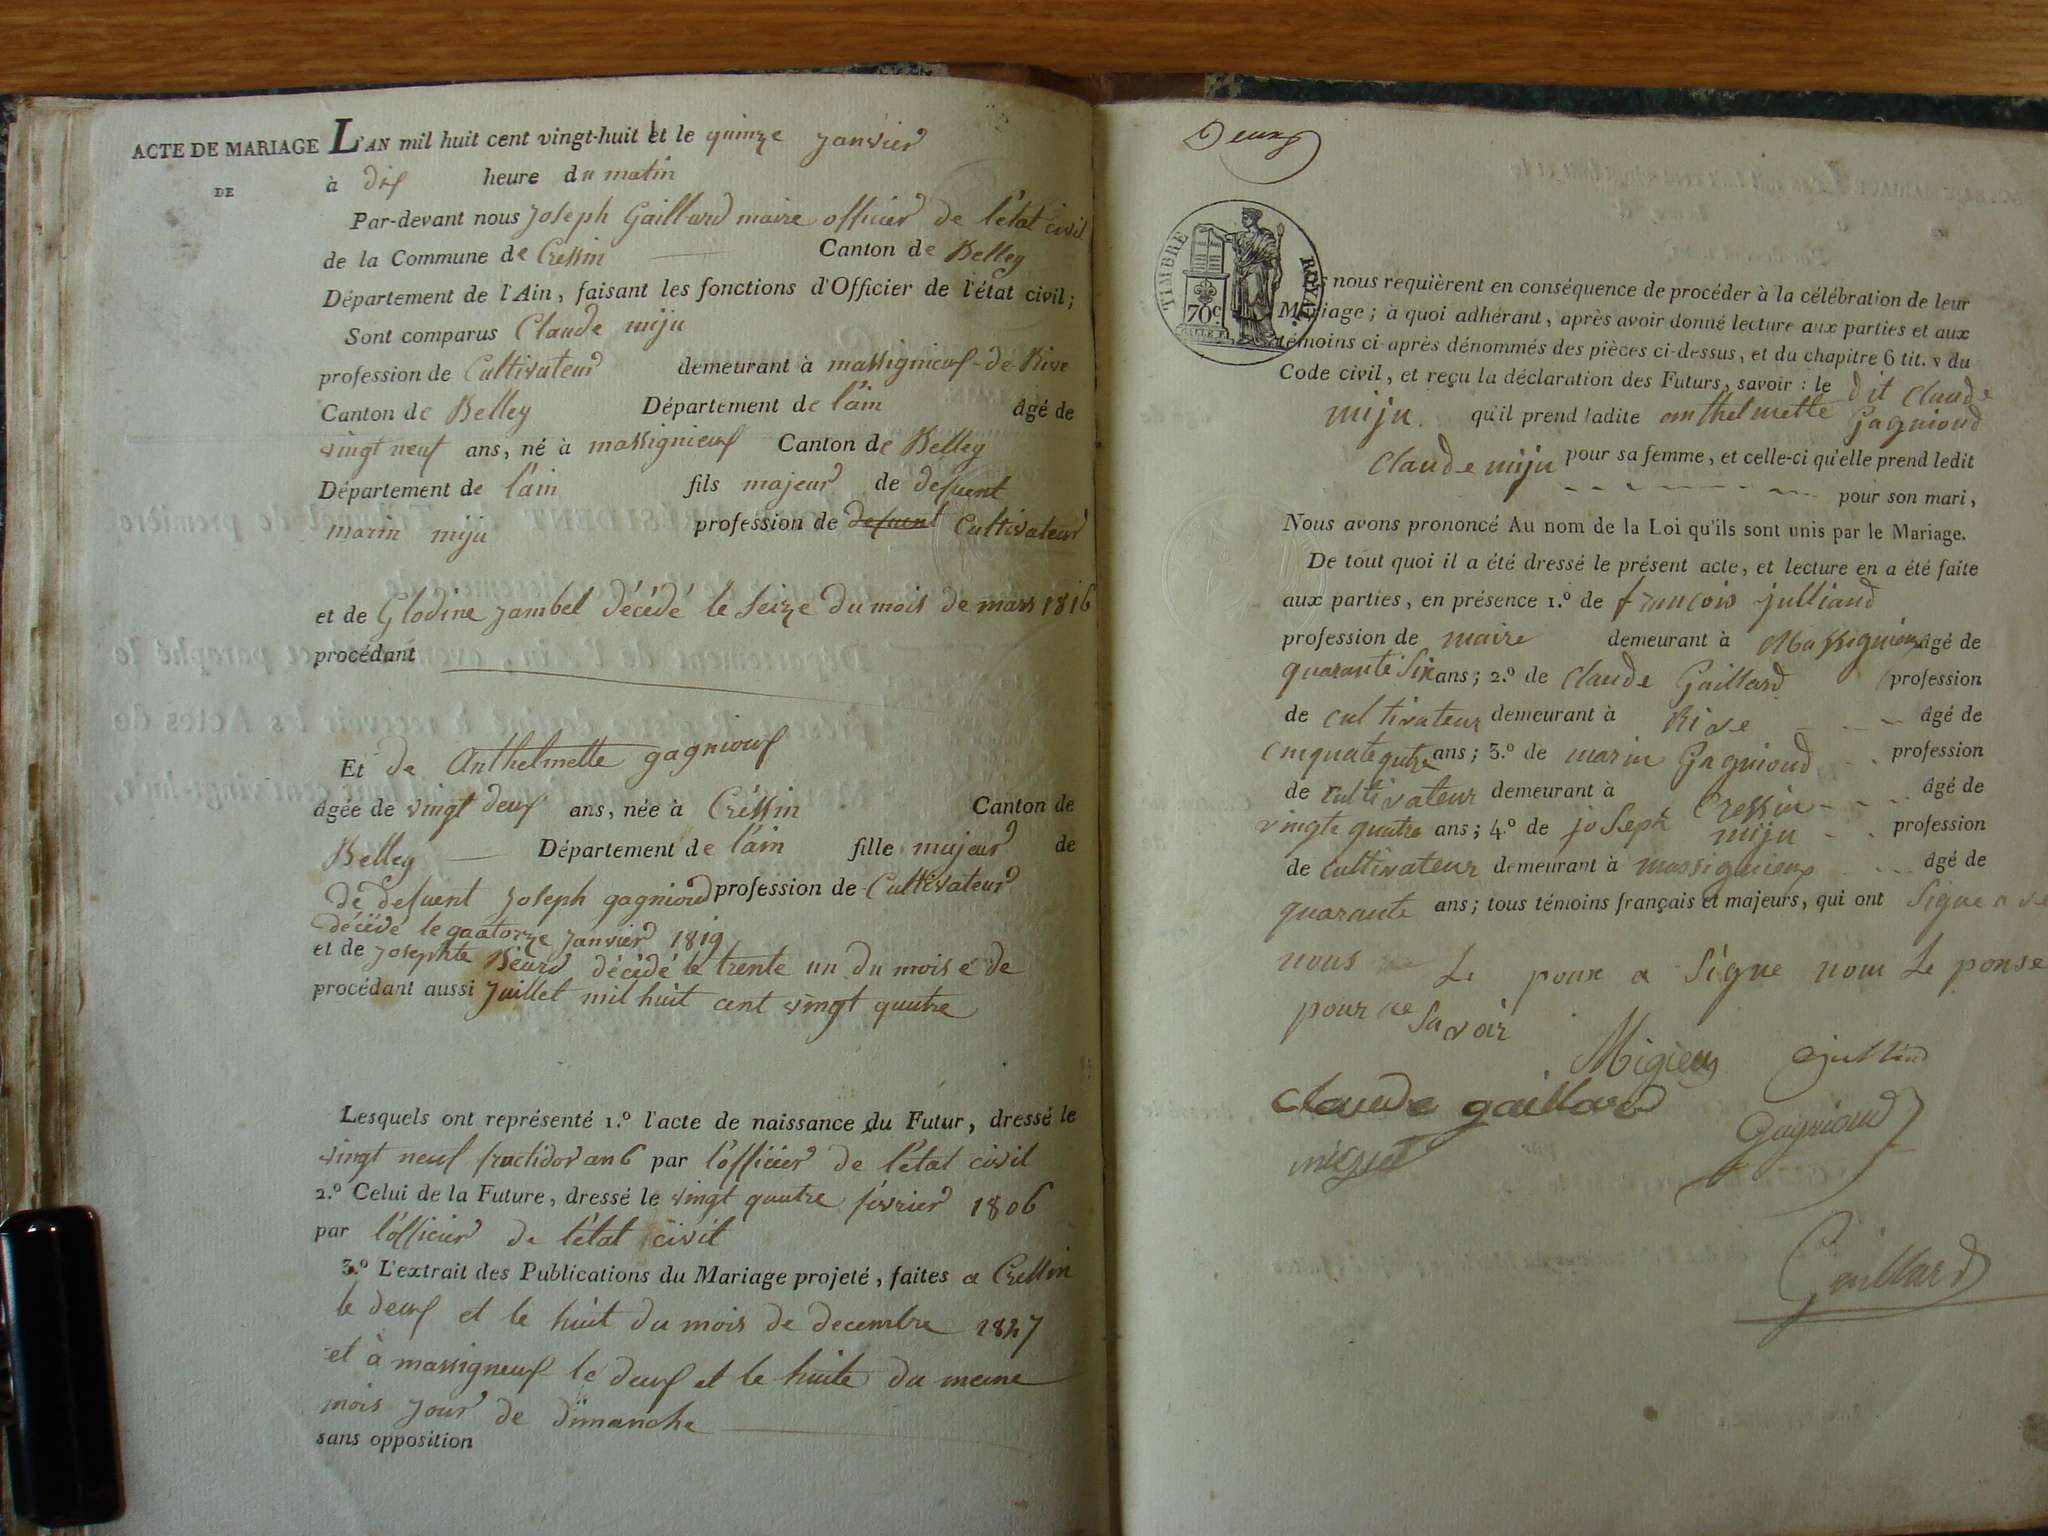 ACTE DE MARIAGE L'AN mil huit cent vingt-huit et le quinze janvier
DE à dix heure du matin
Par-devant nous joseph Gaillard maire officier de l'état civil
de la Commune de Cressin Canton de Belley
Département de l'Ain, faisant les fonctions d'Officier de l'état civil;
Sont comparus Claude miju
profession de Cultivateur demeurant à massignieux-de-Rive
Canton de Belley Département de l'ain âgé de
vingt neuf ans, né à massignieux Canton de Belley
Département de l'ain fils majeur de defuent
marin miju profession de defuent Cultivateur
et de Glodine jambel décédé le seize du mois de mars 1816
procédant
Et de Anthelmette gagnioux
âgée de vingt deux ans, née à Cressin Canton de
Belley Département de l'ain fille majeur de
de defuent joseph gagnioud profession de Cultivateur
décédé le quatorze janvier 1819
et de josephte décédé le trente un du mois e de
procédant aussi juillet mil huit cent vingt quatre
Lesquels ont représenté 1.º l'acte de naissance du Futur, dressé le
vingt neuf fructidor an 6 par l'officier de l'état civil
2.º Celui de la Future, dressé le vingt quatre février 1806
par l'officier de l'état civil
3.º L'extrait des Publications du Mariage projeté, faites a Cressin
le deux et le huit du mois de decembre 1827
et à massigneux le deux et le huite du meme
mois jour de dimanche
sans opposition
Deux
TIMBRE ROYAL
70c
nous requièrent en conséquence de procéder à la célébration de leur
Mariage; à quoi adhérant, après avoir donné lecture aux parties et aux
témoins ci-après dénommés des pièces ci-dessus, et du chapitre 6 tit. v du
Code civil, et reçu la déclaration des Futurs, savoir: le dit Claude
miju qu'il prend ladite anthelmette Gagnioud
pour sa femme, et celle-ci qu'elle prend ledit
Claude miju pour son mari,
Nous avons prononcé Au nom de la Loi qu'ils sont unis par le Mariage.
De tout quoi il a été dressé le présent acte, et lecture en a été faite
aux parties, en présence 1.º de françois julliand
profession de maire demeurant à Massignieux âgé de
quarante six ans; 2.º de Claude Gaillard profession
de cultivateur demeurant à Rive âgé de
cinquate qutre ans; 3.º de marin Gagnioud profession
de cultivateur demeurant à Cressin âgé de
vingte quatre ans; 4.º de joseph miju profession
de cultivateur demeurant à massignieux âgé de
quarante ans; tous témoins français et majeurs, qui ont signe a ve
nous Le poux a signe nom Le ponse
pour ne savoir
Migieux Julliand
Claude gaillard
Gagnioud
Gaillard